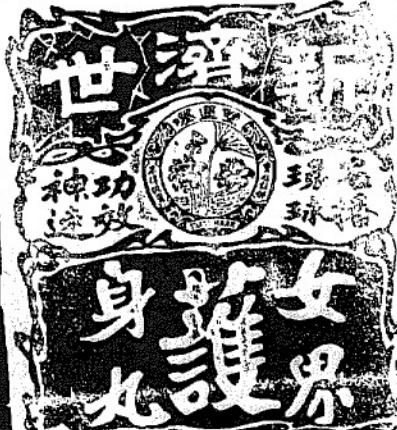 新濟世
名播環球
功效神速
女界護身丸